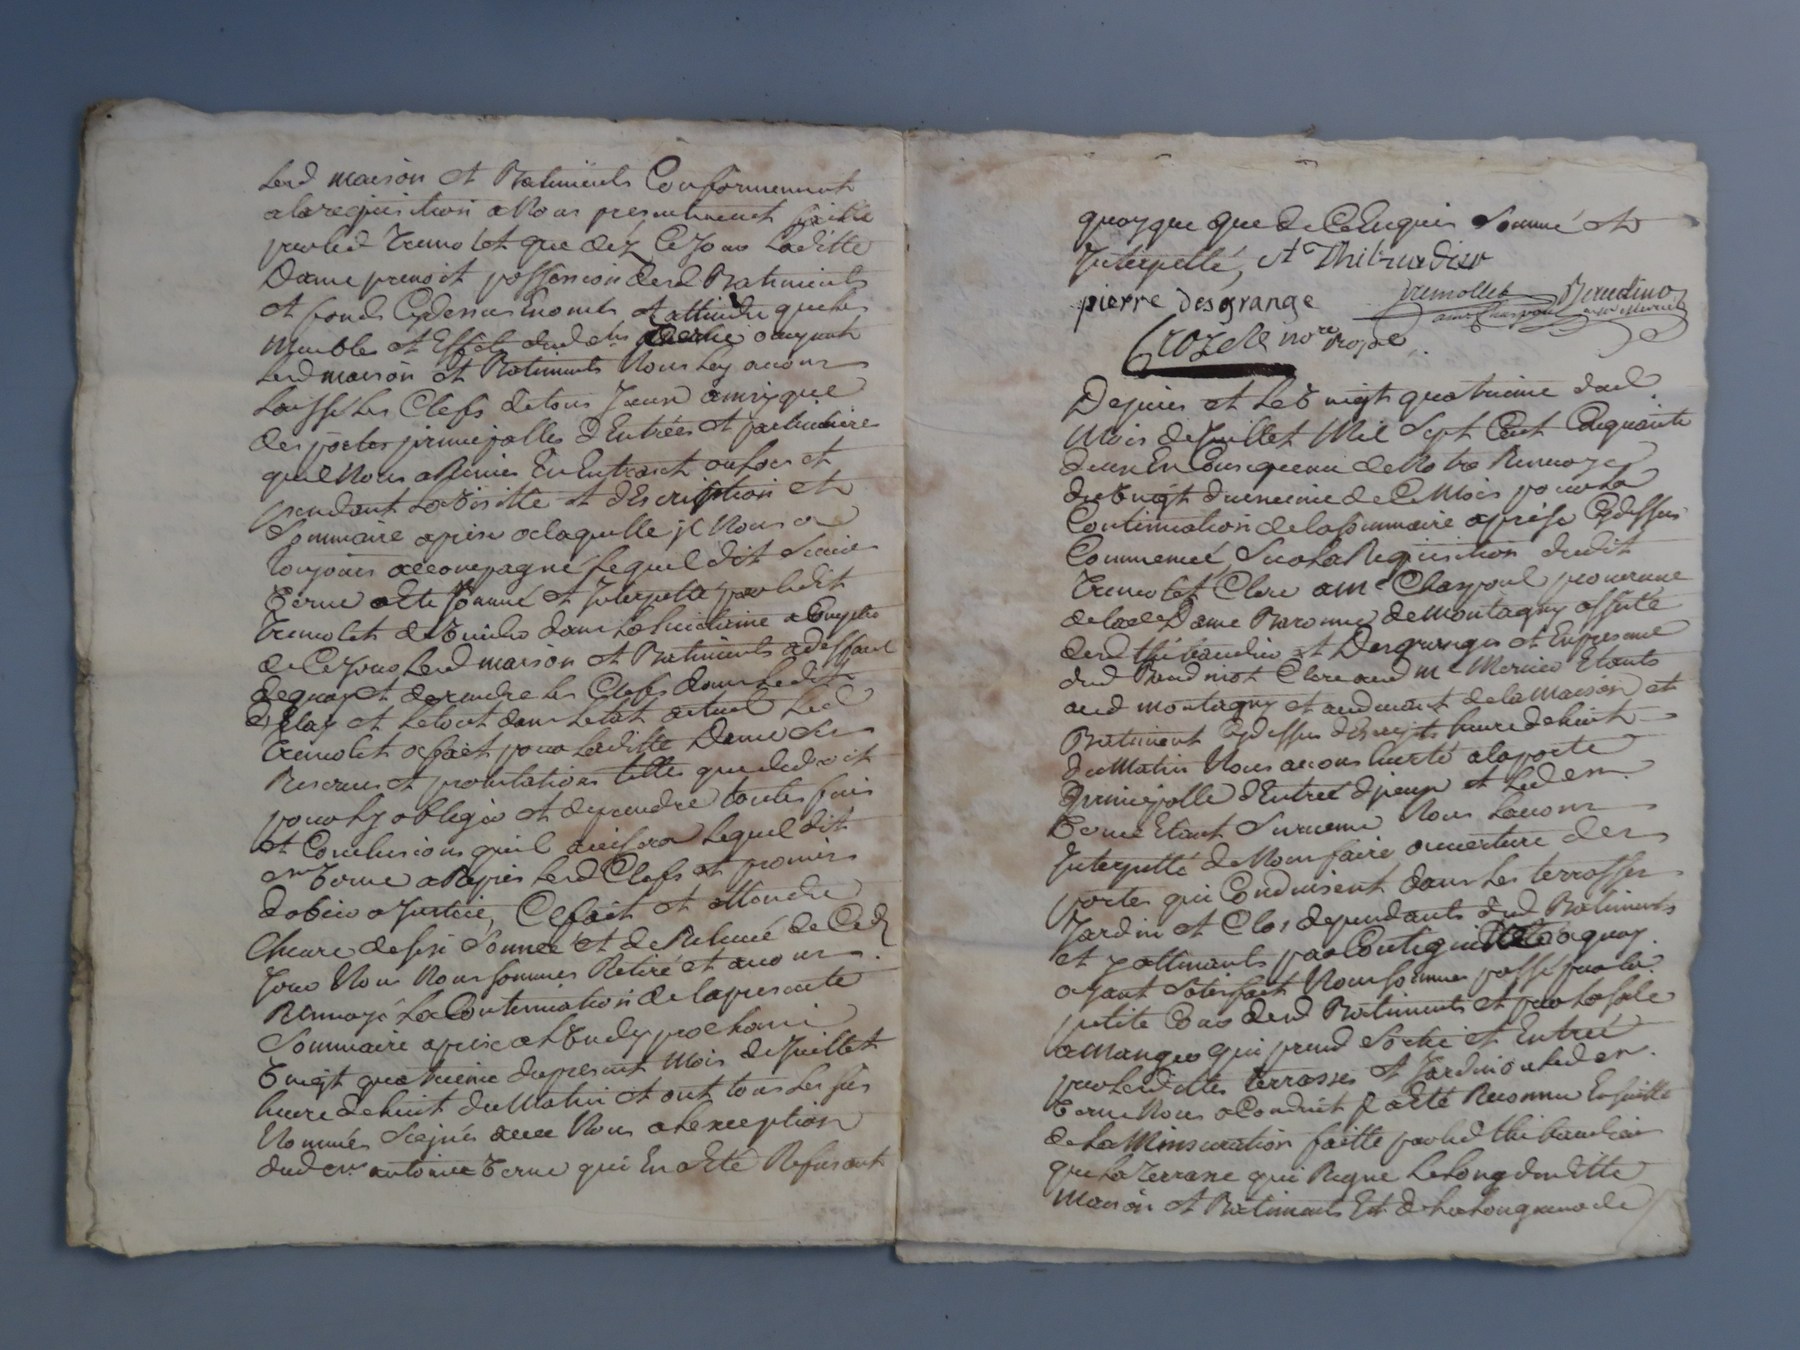 lesd maison et Batiments Conformement
a la requisition a Nous presentement faitte
par led Tremolet que déz Ce Jour Laditte
Dame prenoit possession desd Batiments
et fonds Cy dessus Enoncés et attendu que les
Meubles et Effets dud Sr Terme occupent
Lesd maison et Batiments Nous luy avons
Laissé Les Clefs de tous Iceux ainsy que
des portes principalles d'Entrées et particulieres
quil Nous a Remis En Entrant
pendant La Visitte et d'Escription et
Sommaire aprise a laquelle il Nous a
toujours accompagné Lequel dit Sieur
Terme a Eté Sommé et Interpellé par ledit
Tremolet de Vuider dans La huitaine a Compter
de Ce Jour Lesd maison et Batiments a deffaut
de quoy et de rendre les Clefs dans Ledit
delay et Le tout dans Letat actuel Led
Tremolet a fait pour Laditte Dame Ses
Reserves et protestations telles que de droit
pour Ly obliger et de prendre toutes fois
et Conclusions quil avisera Lequel dit
Sr Terme a Repris Lesd Clefs et promis
d'obeir a Justice, Ce fait et attendu
L'heure de six Sonnée et de Relevée de Ced
Jour Nous Nous sommes Retiré et avons
Renvoyé La Continuation de la presente
Sommaire aprise a Lundy prochain
Vingt quatrieme du present Mois de Juillet
heure de huit du Matin et ont tous Les sus
Nommés Signés avec Nous a Lexception
dud Sr antoine Terme qui En a Eté Refusant
quoyque que de Ce Enquis Sommé et
Interpellé, et Thibaudier
pierre desgrange Tremollet Beaudinot
Crozete nore royal
Depuis et Le Vingt quatrieme dud
Mois de Juillet Mil Sept Cent Cinquante
deux En Consequence de Notre Renvoy
du Vingt deuxieme de Ce Mois pour La
Continuation de la Sommaire aprise Cy dessus
Commencé, Sur La Requisition dudit
Tremolet Clerc a Me Chaspoul procureur
de lad Dame Baronne de Montagny assisté
desd thibaudier et Desgranges et En presence
dud Beaudinot Clerc aud Me Mercier Etants
aud montagny et audevant de la Maison et
Batiment Cy dessus d'Escript heure de huit
du Matin Nous avons hurté a la porte
principalle d'Entrée d'jceux et Led Sr
Terme Etant Survenu Nous Lavons
Interpellé de Nous faire ouverture des
portes qui Conduisent dans Les terrasses
Jardin et Clos dependants dud Batiments
et y attenants par Contiguité a quoy
ayant Satisfait Nous sommes passé par la
petite Cour desd Batiments et par La sale
a manger qui prend Sortie et Entrée
par lesdittes terrasses et Jardin ou led Sr
Terme Nous a Conduit Et a Eté Reconnu Ensuitte
de La Mensuration faitte par led thibaudier
que La Terrasse qui Regne Le long de laditte
Maison et Batiments Est de La Longueur de